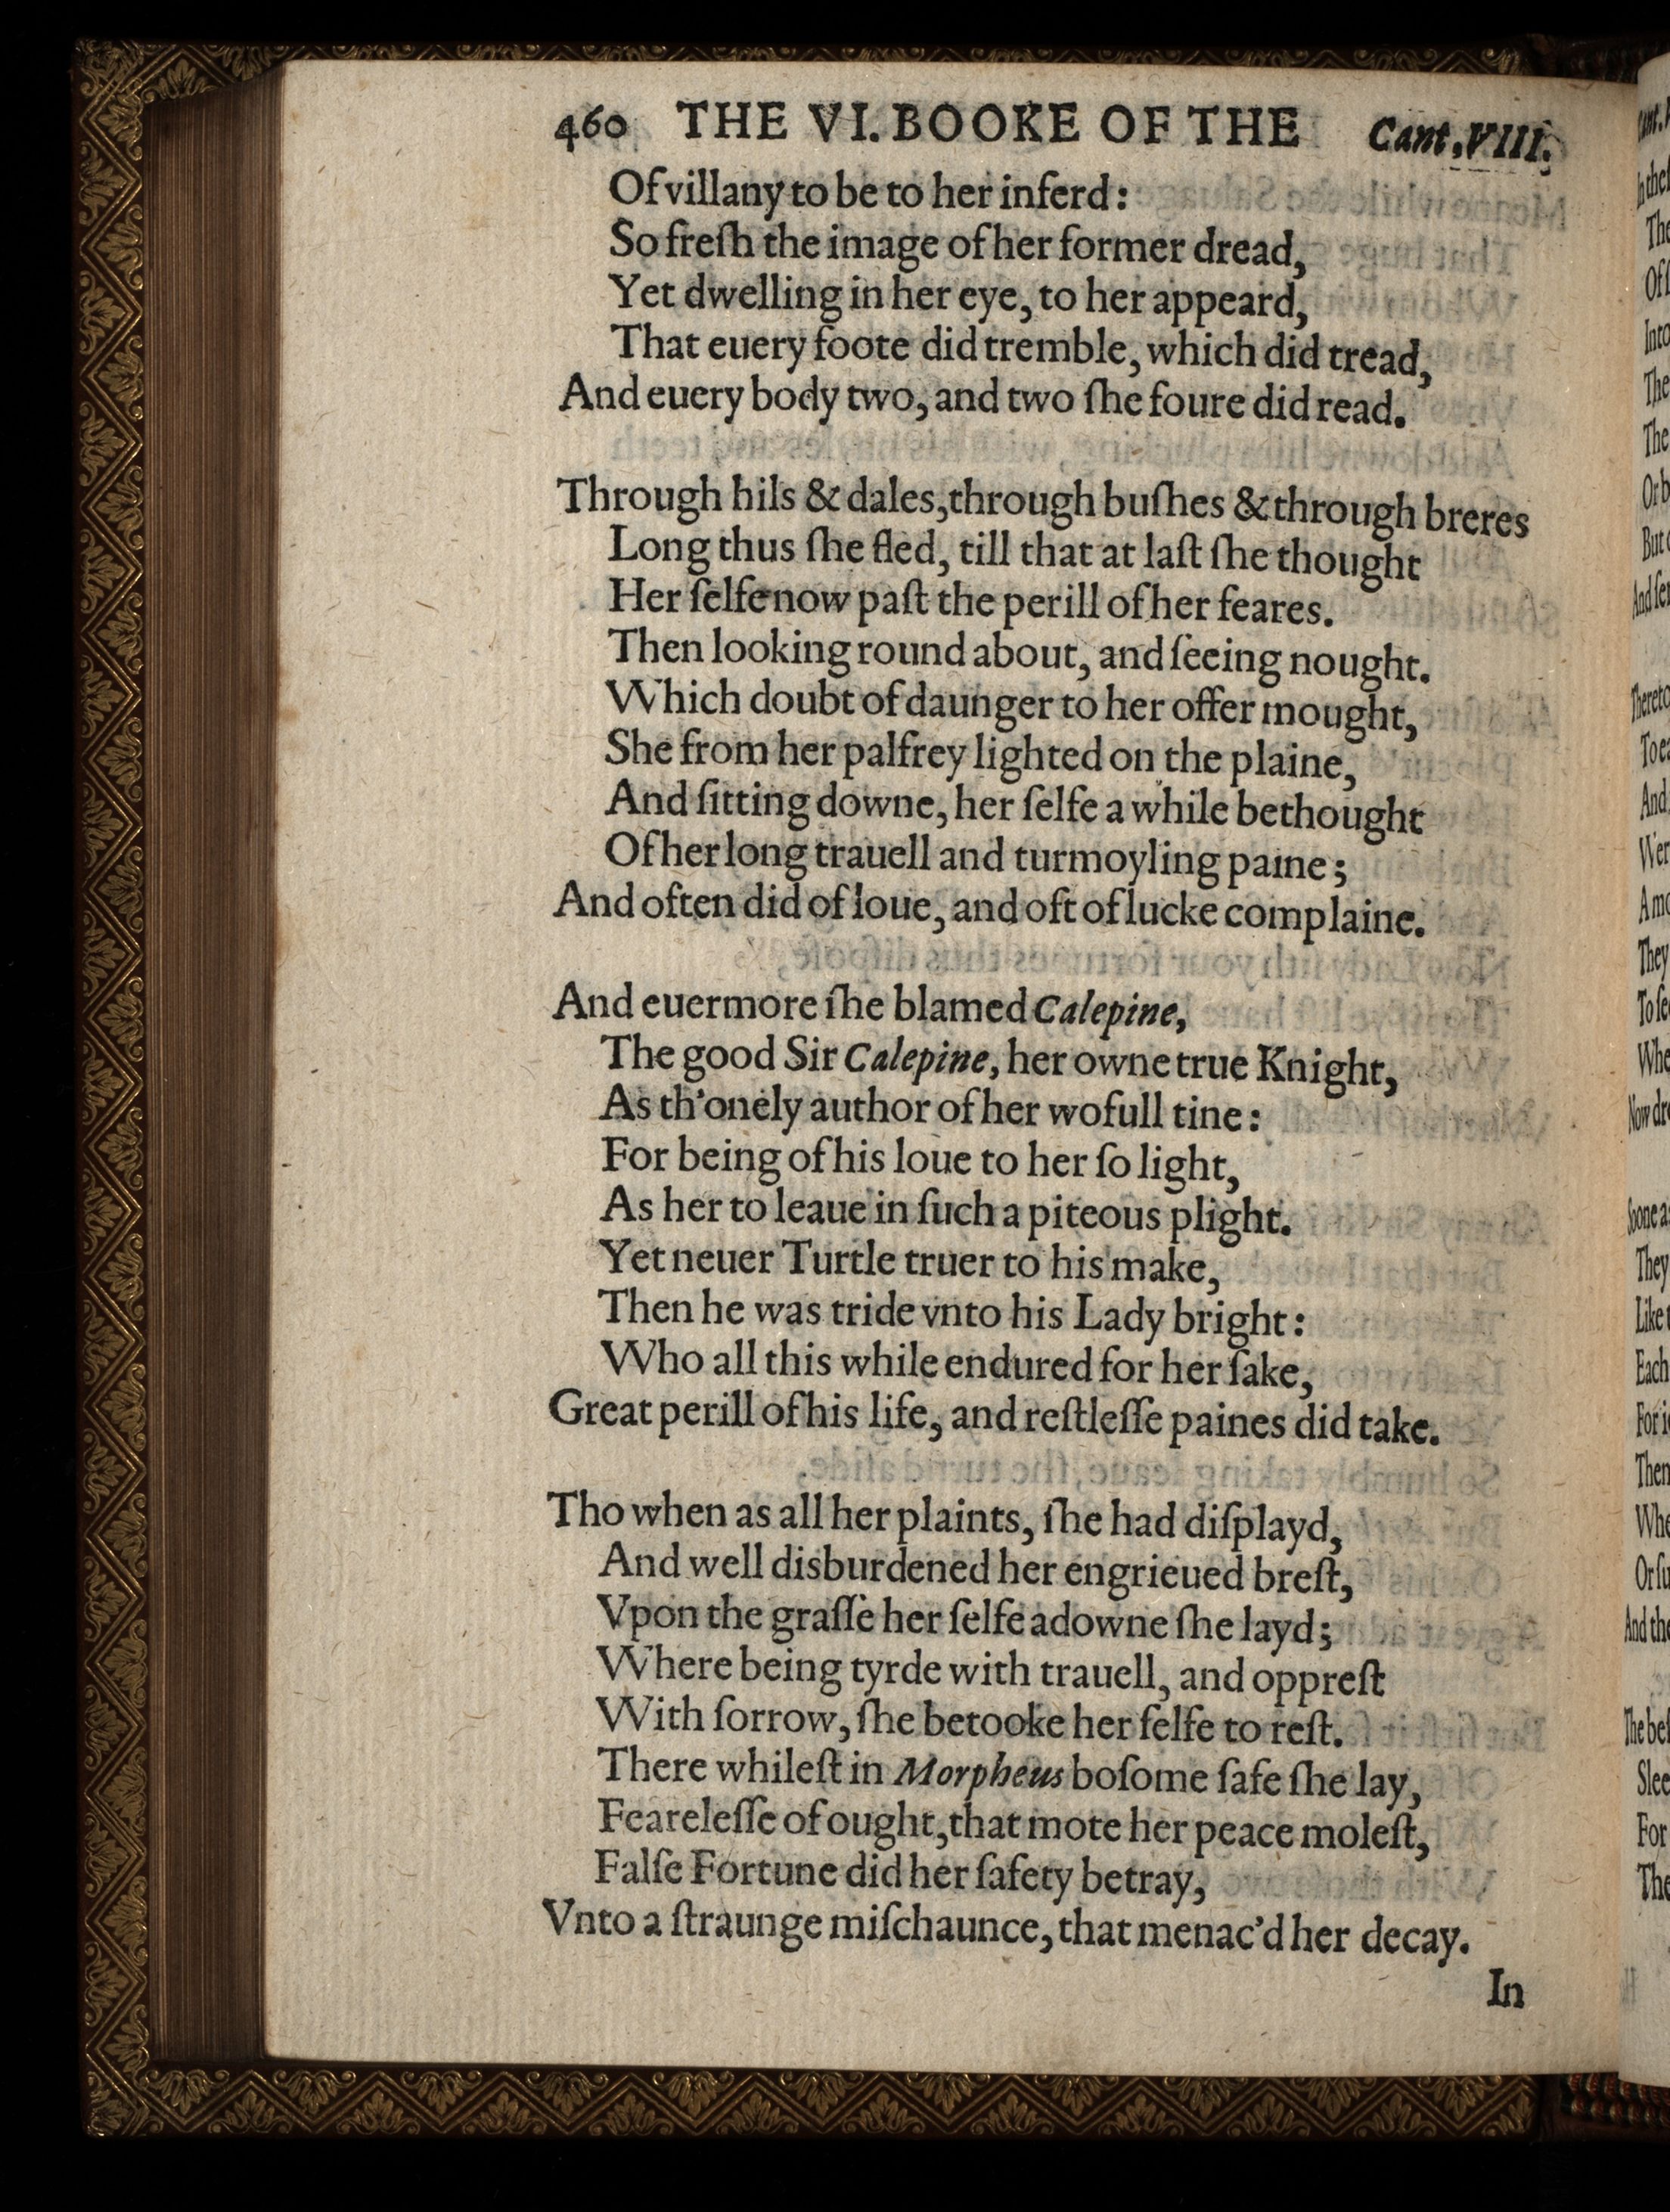 460 THE VI. BOOKE OF THE Cant.VIII.
Of villany to be to her inferd:
So freſh the image of her former dread,
Yet dwelling in her eye, to her appeard,
That euery foote did tremble, which did tread,
And euery body two, and two ſhe foure did read.
Through hils & dales, through buſhes & through breres
Long thus ſhe fled, till that at laſt ſhe thought
Her ſelfe now paſt the perill of her feares.
Then looking round about, and ſeeing nought.
Which doubt of daunger to her offer mought,
She from her palfrey lighted on the plaine,
And ſitting downe, her ſelfe a while bethought
Of her long trauell and turmoyling paine;
And often did of loue, and oft of lucke complaine.
And euermore ſhe blamed Calepine,
The good Sir Calepine, her owne true Knight,
As th'onely author of her wofull tine:
For being of his loue to her ſo light,
As her to leaue in ſuch a piteous plight.
Yet neuer Turtle truer to his make,
Then he was tride vnto his Lady bright:
Who all this while endured for her ſake,
Great perill of his life, and reſtleſſe paines did take.
Tho when as all her plaints, ſhe had diſplayd,
And well disburdened her engrieued breſt,
Vpon the graſſe her ſelfe adowne ſhe layd;
Where being tyrde with trauell, and oppreſt
With ſorrow, ſhe betooke her ſelfe to reſt.
There whileſt in Morpheus boſome ſafe ſhe lay,
Feareleſſe of ought, that mote her peace moleſt,
Falſe Fortune did her ſafety betray,
Vnto a ſtraunge miſchaunce, that menac'd her decay.
In